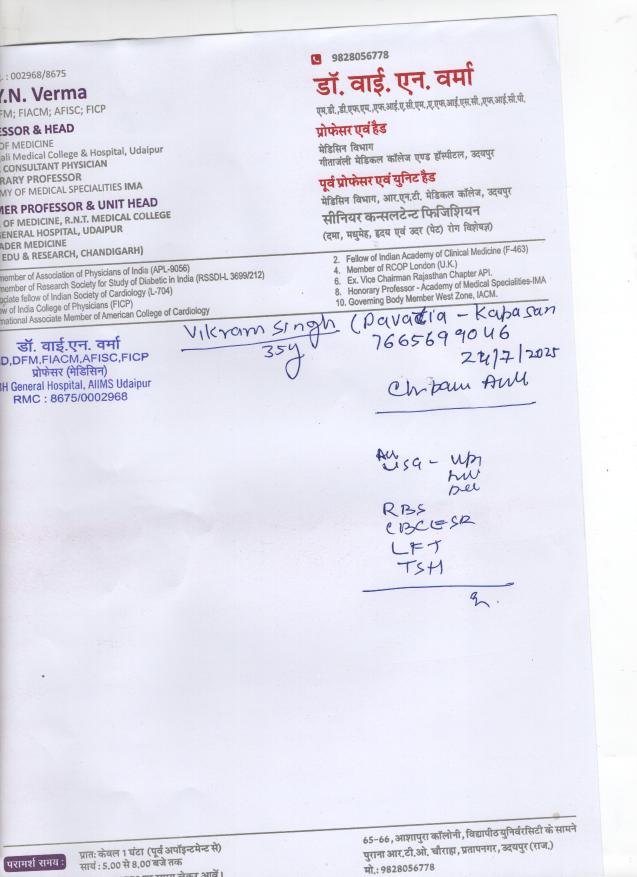 . : 002968/8675
Y.N. Verma
FM; FIACM; AFISC; FICP
ESSOR & HEAD
OF MEDICINE
ali Medical College & Hospital, Udaipur
CONSULTANT PHYSICIAN
RARY PROFESSOR
MY OF MEDICAL SPECIALITIES IMA
MER PROFESSOR & UNIT HEAD
OF MEDICINE, R.N.T. MEDICAL COLLEGE
GENERAL HOSPITAL, UDAIPUR
ADER MEDICINE
EDU & RESEARCH, CHANDIGARH)
9828056778
डॉ. वाई. एन. वर्मा
एम.डी.,डी.एफ.एम.,एफ.आई.ए.सी.एम.,ए.एफ.आई.एस.सी.,एफ.आई.सी.पी.
प्रोफेसर एवं हैड
मेडिसिन विभाग
गीताजंली मेडिकल कॉलेज एण्ड हॉस्पीटल, उदयपुर
पूर्व प्रोफेसर एवं युनिट हैड
मेडिसिन विभाग, आर.एन.टी. मेडिकल कॉलेज, उदयपुर
सीनियर कन्सलटेन्ट फिजिशियन
(दमा, मधुमेह, हृदय एवं उदर (पेट) रोग विशेषज्ञ)
member of Association of Physicians of India (APL-9056)
member of Research Society for Study of Diabetic in India (RSSDI-L 3699/212)
ociate fellow of Indian Society of Cardiology (L-704)
ow of India College of Physicians (FICP)
rnational Associate Member of American College of Cardiology
2. Fellow of Indian Academy of Clinical Medicine (F-463)
4. Member of RCOP London (U.K.)
6. Ex. Vice Chairman Rajasthan Chapter API.
8. Honorary Professor - Academy of Medical Specialities-IMA
10. Governing Body Member West Zone, IACM.
डॉ. वाई.एन. वर्मा
D,DFM,FIACM,AFISC,FICP
प्रोफेसर (मेडिसिन)
BH General Hospital, AIIMS Udaipur
RMC : 8675/0002968
Vikram Singh
35y
- Kapasan
7665699046
24/7/2025
USG -
RBS
CBC ESR
LFT
TSH
परामर्श समय :
प्रातः केवल 1 घंटा (पूर्व अपॉइन्टमेन्ट से)
सायं : 5.00 से 8.00 बजे तक
65-66, आशापुरा कॉलोनी, विद्यापीठ युनिर्वरसिटी के सामने
पुराना आर.टी.ओ. चौराहा, प्रतापनगर, उदयपुर (राज.)
मो.: 9828056778